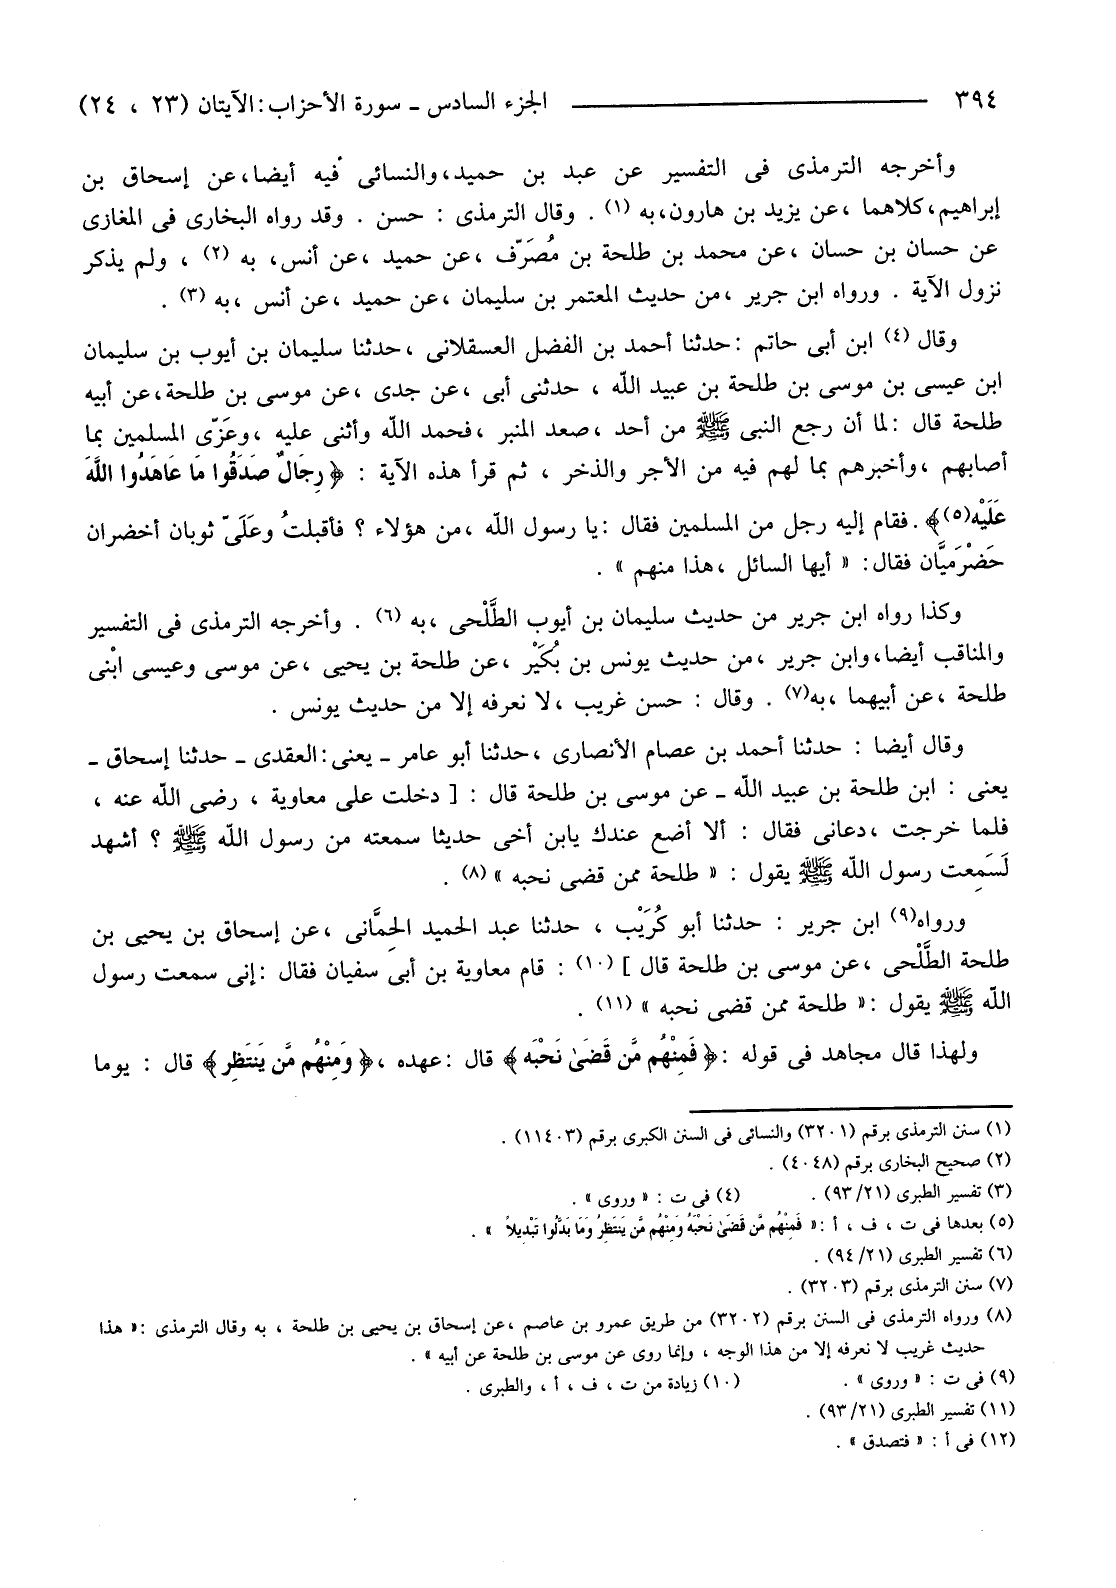 ٣٩٤ ــــــــــــــــــــ الجزء السادس ـ سورة الأحزاب : الآيتان (٢٣ ، ٢٤)
وأخرجه الترمذى فى التفسير عن عبد بن حميد،والنسائى فيه أيضا،عن إسحاق بن
إبراهيم،كلاهما ،عن يزيد بن هارون،به (١) . وقال الترمذى : حسن . وقد رواه البخارى فى المغازى
عن حسان بن حسان ،عن محمد بن طلحة بن مُصَرّف ،عن حميد ،عن أنس، به (٢) ، ولم يذكر
نزول الآية . ورواه ابن جرير ،من حديث المعتمر بن سليمان ،عن حميد ،عن أنس ،به (٣) .
وقال (٤) ابن أبى حاتم :حدثنا أحمد بن الفضل العسقلانى ،حدثنا سليمان بن أيوب بن سليمان
ابن عيسى بن موسى بن طلحة بن عبيد الله ، حدثنى أبى ،عن جدى ،عن موسى بن طلحة،عن أبيه
طلحة قال :لما أن رجع النبى ﷺ من أحد ،صعد المنبر ،فحمد الله وأثنى عليه ،وعَزّى المسلمين بما
أصابهم ،وأخبرهم بما لهم فيه من الأجر والذخر ، ثم قرأ هذه الآية : ﴿ رِجَالٌ صَدَقُوا مَا عَاهَدُوا اللَّهَ
عَلَيْه(٥)﴾ .فقام إليه رجل من المسلمين فقال :يا رسول الله ،من هؤلاء ؟ فأقبلتُ وعَلَىّ ثوبان أخضران
حَضْرَميَّان فقال: « أيها السائل ،هذا منهم » .
وكذا رواه ابن جرير من حديث سليمان بن أيوب الطَّلْحى ،به (٦) . وأخرجه الترمذى فى التفسير
والمناقب أيضا،وابن جرير ،من حديث يونس بن بُكَيْر ،عن طلحة بن يحيى ،عن موسى وعيسى ابْنى
طلحة ،عن أبيهما ،به(٧) . وقال : حسن غريب ،لا نعرفه إلا من حديث يونس .
وقال أيضا : حدثنا أحمد بن عصام الأنصارى ،حدثنا أبو عامر ـ يعنى:العقدى ـ حدثنا إسحاق ـ
يعنى : ابن طلحة بن عبيد الله ـ عن موسى بن طلحة قال : [ دخلت على معاوية ، رضى الله عنه ،
فلما خرجت ،دعانى فقال : ألا أضع عندك يابن أخى حديثا سمعته من رسول الله ﷺ ؟ أشهد
لَسَمِعت رسول الله ﷺ يقول : « طلحة ممن قضى نحبه » (٨) .
ورواه(٩) ابن جرير : حدثنا أبو كُرَيْب ، حدثنا عبد الحميد الحِمَّانى ،عن إسحاق بن يحيى بن
طلحة الطَّلْحى ،عن موسى بن طلحة قال ] (١٠) : قام معاوية بن أبى سفيان فقال :إنى سمعت رسول
الله ﷺ يقول :« طلحة ممن قضى نحبه » (١١) .
ولهذا قال مجاهد فى قوله :﴿ فَمِنْهُم مَّن قَضَىٰ نَحْبَه ﴾ قال :عهده ،﴿ وَمِنْهُم مَّن يَنتَظِر ﴾ قال : يوما
(١) سنن الترمذى برقم (٣٢٠١) والنسائى فى السنن الكبرى برقم (١١٤٠٣) .
(٢) صحيح البخارى برقم (٤٠٤٨) .
(٣) تفسير الطبرى (٢١/ ٩٣) . (٤) فى ت : « وروى » .
(٥) بعدها فى ت ، ف ، أ :« فَمِنْهُم مَّن قَضَىٰ نَحْبَهُ وَمِنْهُم مَّن يَنتَظِرُ وَمَا بَدَّلُوا تَبْدِيلاً » .
(٦) تفسير الطبرى (٢١/ ٩٤) .
(٧) سنن الترمذى برقم (٣٢٠٣) .
(٨) ورواه الترمذى فى السنن برقم (٣٢٠٢) من طريق عمرو بن عاصم ،عن إسحاق بن يحيى بن طلحة ، به وقال الترمذى :« هذا
حديث غريب لا نعرفه إلا من هذا الوجه ، وإنما روى عن موسى بن طلحة عن أبيه » .
(٩) فى ت : « وروى » . (١٠) زيادة من ت ، ف ، أ ، والطبرى .
(١١) تفسير الطبرى (٢١/ ٩٣) .
(١٢) فى أ : « فتصدق » .